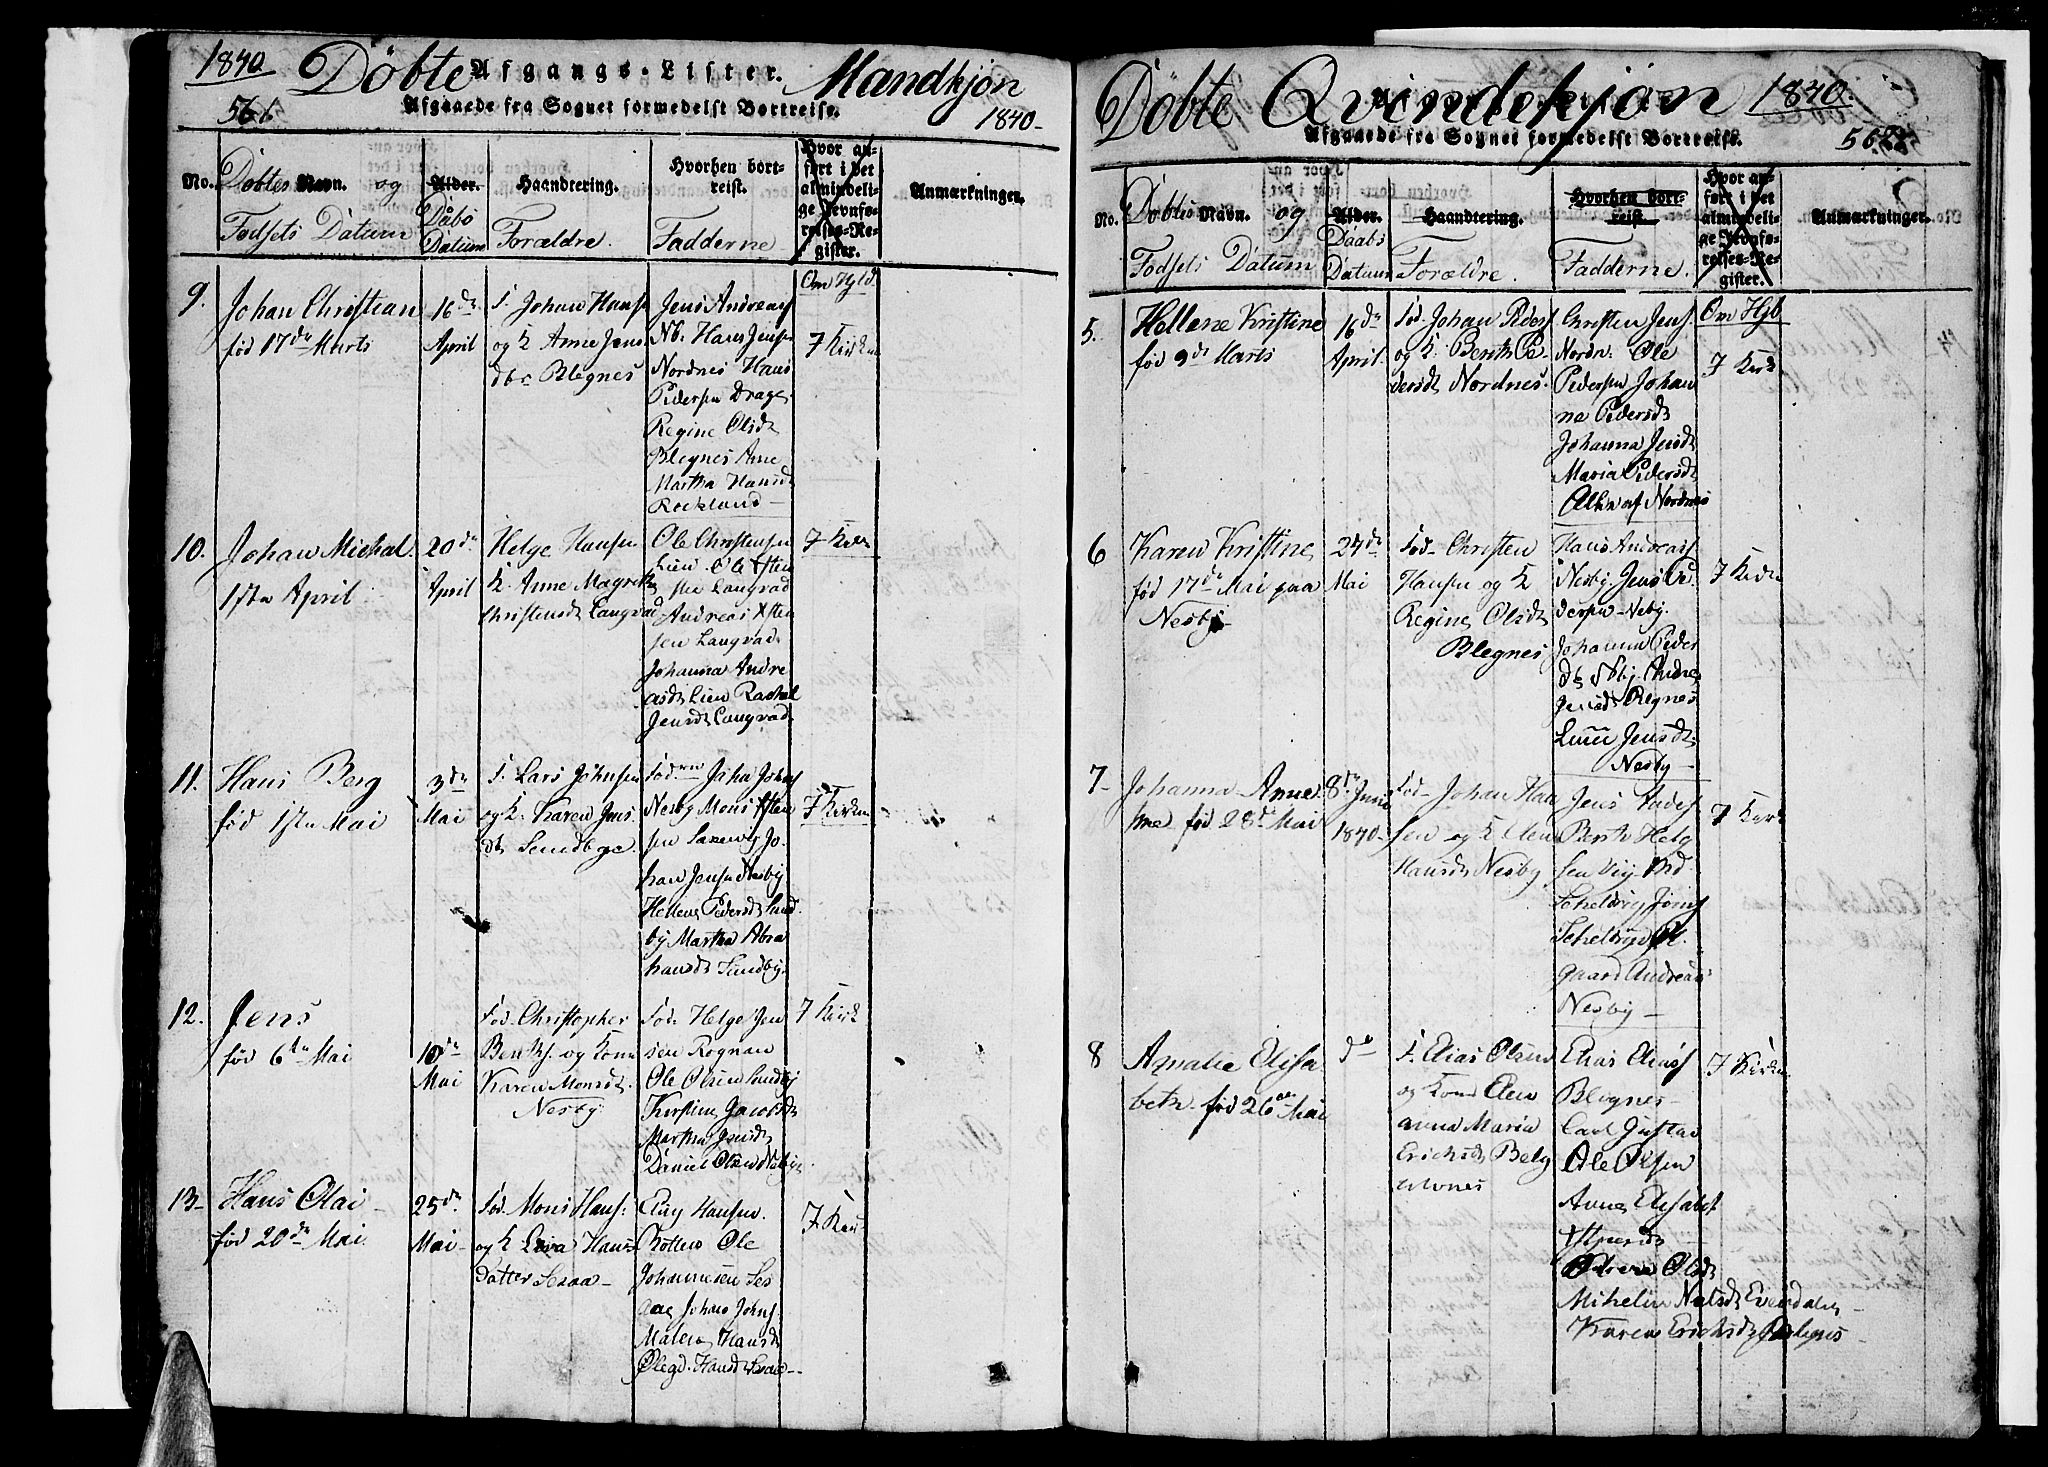 1840
Döbte Afgangs-Lister. Mandkjön
561 Afgaaede fra Sognet formedelst Bortreise. 1840-
No. Döbtes Navn. og
Fødsels Datum
Alder.
Daabs
Datum
Haandtering.
Forældre.
Hvorhen bort-
reist.
Fadderne
Hvor an-
ført i det
almindeli-
ge Jevnfø-
relses-Re-
gister.
Anmærkninger.
Om Hjd.
9. Johan Christian
fød 17de Marts
16de
April
F. Johan Hans
og K Anne Jens
dtr Blegnes
Jens Andreas
Nb. Hans Jensen
Nordnes Hans
Pedersen Drage
Regine Olsdt
Blegnes Anne
Martha Hansdt
Rockland
7 Kirken
10. Johan Michal
1ste April
20de
April
Helge Hansen
K. Anne Magreth
Christensdt Langvad
Ole Christensen
Lien Ole Sten
sen Langvad
Andreas Sten
sen Langvad
Johanna Andre
asdt Lien Rachel
Jensdt Langvad
7 Kirk
11. Hans Berg
fød 1ste Mai
3de
Mai
F. Lars Johnsen
og K. Karen Jens
dt Sundbye.
Nesby Mons Sten
sen Saxenvig Jo-
han Jensen Nesby
Hellene Pedersdt Sund
by Martha Abra
hamsdt Sundby
7 Kirken
12. Jens
fød 6te Mai
10de
Mai
Fød. Christopher
Benths. og Kone
Karen Monsdt.
Nesby
Fød. Helge Jen
sen Rognan
Ole Olsen Sundby
Kirstine Jacobsdt
Martha Jensdt
Daniel Olsen Nesby
7 Kirk
13- Hans Olai
fød 20de Mai.
25de
Mai-
Fød. Mons Hans:
og K Hans
datter Seraa-
Hansen.
Botten Ole
Johannesen Ses
aae Johan Johns.
Malene Hansdt
Olegd. Hansdt
7 Kir
Döbte Qvindekjön 1840.
Afgaaede fra Sognet formedelst Bortreise. 562
No. Döbtes Navn. og
Fødsels Datum
Alder.
Daabs
Datum
Haandtering.
Forældre.
Hvorhen bort-
reist.
Fadderne.
Hvor an-
ført i det
almindeli-
ge Jevnfø-
relses-Re-
gister.
Anmærkninger.
Om Hjb
5. Hellene Kristine
fød 9de Marts
16de
April.
Fød. Johan Peders
og K. Benth Pe-
dersdt Nordnes.
Christen Jens
Nordn. Ole
Pedersen Johan
na Pedersdt
Johanna Jensdt
Maria Pedersdt
Alle af Nordnes
7 Kirk
6 Karen Kristine
fød 17de Mai paa
Nesby-
24de
Mai
Fød- Christen
Hansen og K
Regine Olsdt
Blegnes
Hans Andreas
Nesby. Jens Pe
dersen Neby.
Johanna Peder
dt Nbj. Andre
Jensdt Regnes
Jensdt.
Nesby
7 Kirken
7- Johanna Anne
fød 28de Mai
8de Juni
1840-
Fød- Johan Han
sen og K Elen
Hansdt Nesby
Jens Andes
Benth Helg
sen Vig
Gaard Andreas
Nesby
7 Kirk
8 Amalie Elisa
beth. fød 26de Mai
do
F. Elias Olsen
og Kone Elen
anna Maria
Ericksdt
Elias Elias
Blegnes
Carl Gustav
Ole Olsen
Anne Elisabet
Olsdt
Mihelin Nielsdt Evensdalen
Karen Ericksdt
7 Kirken